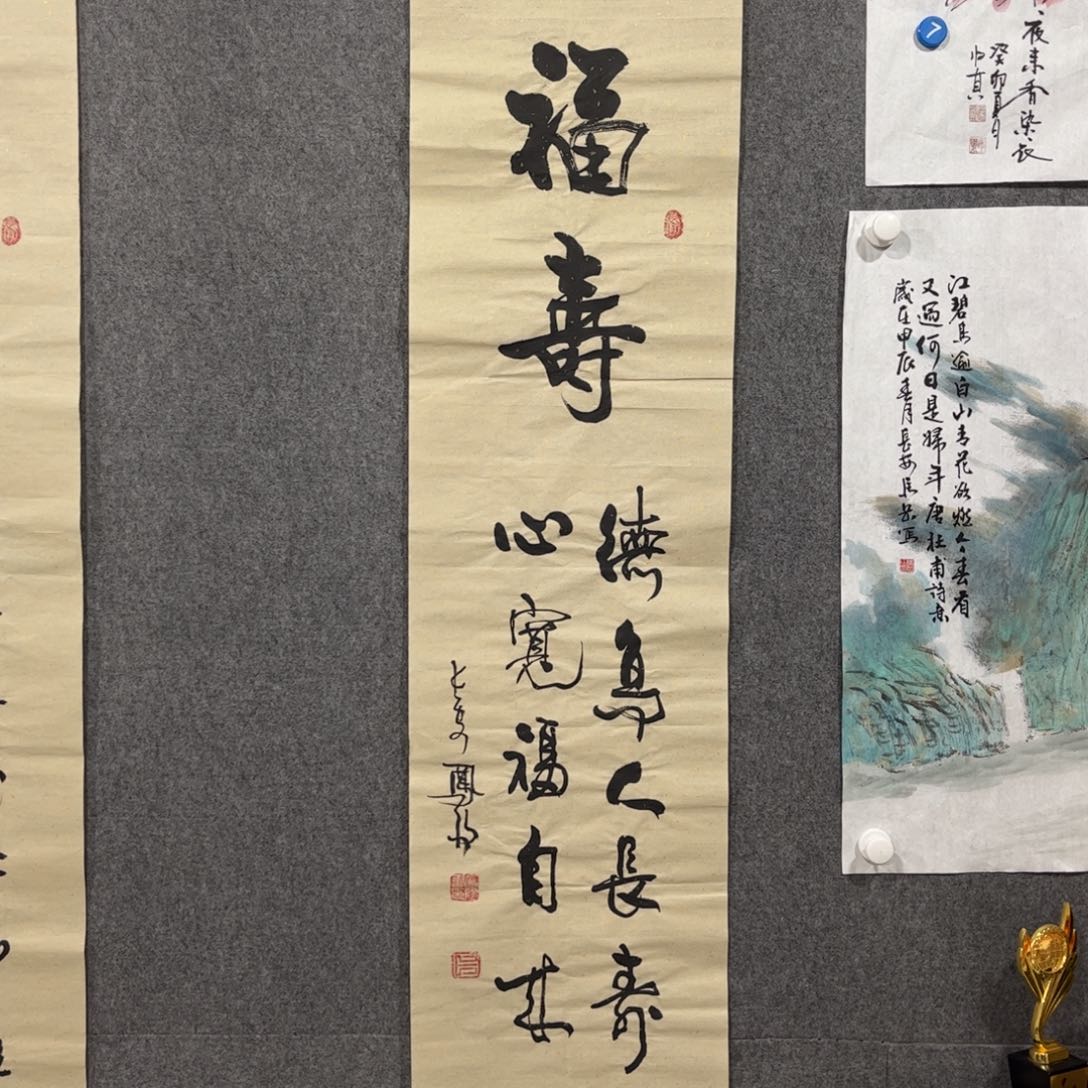 福壽
德高人長壽
心寬福自來
长安
7
夜来香染衣
癸卯夏月
江碧鳥逾白山青花欲燃今春看
又過何日是歸年唐杜甫詩意
歲在甲辰春月長安寫